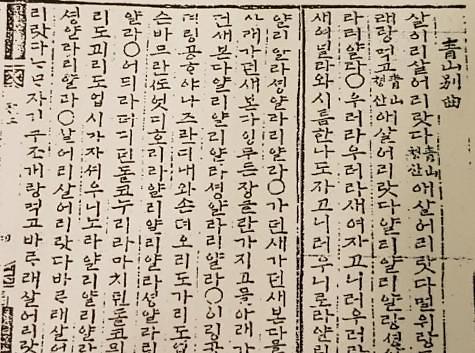 青山別曲
살어리살어리랏다青山쳥산애살어리랏다멀위랑
ᄃᆞ래랑먹고青山쳥산애살어리랏다얄리얄리얄랑셩얄
라리얄라○우러라우러라새여자고니러우러라
새여널라와시름한나도자고니러우니로라얄리
얄리얄라셩얄라리얄라○가던새가던새본다믈
아래가던새본다잉무든장글란가지고믈아래가
던새본다얄리얄리얄라셩얄라리얄라○이링공
뎌링공ᄒᆞ야나즈란디내와손뎌오리도가리도업
슨바므란ᄯᅩ엇디호리라얄리얄리얄라셩얄라리
얄라○어듸라더디던돌코누리라마치던돌코믜
리도괴리도업시마자셔우니노라얄리얄리얄라
셩얄라리얄라○살어리살어리랏다바ᄅᆞ래살어
리랏다ᄂᆞᄆᆞ자기구조개랑먹고바ᄅᆞ래살어리랏